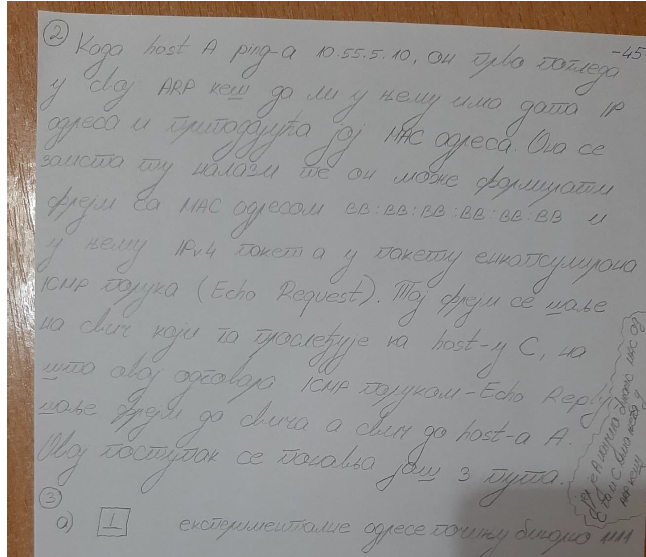 ② Када host A ping-а 10.55.5.10, он прво погледа
-45
у свој ARP кеш да ли у њему има дата IP
адреса и припадајућа јој MAC адреса. Она се
заиста ту налази те он може формирати
фрејм са MAC адресом BB:BB:BB:BB:BB:BB и
у њему IPv4 пакет а у пакету енкапсулирана
ICMP порука (Echo Request). Тај фрејм се шаље
на свич који га прослеђује на host-у C, на
шта овај одговара ICMP поруком-Echo Reply
шаље фрејм до свича а свич до host-а A.
Овај поступак се понавља још 3 пута.
③
а) 1 експерименталне адресе почињу бинарно 1111
ARP кеш